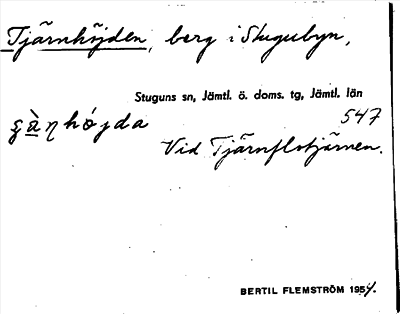 Tjärnhöjden, berg i Stugubyn,
Stuguns sn, Jämtl. ö. doms. tg, Jämtl. län
547
Vid Tjärnflotjärnen.
BERTIL FLEMSTRÖM 1954.